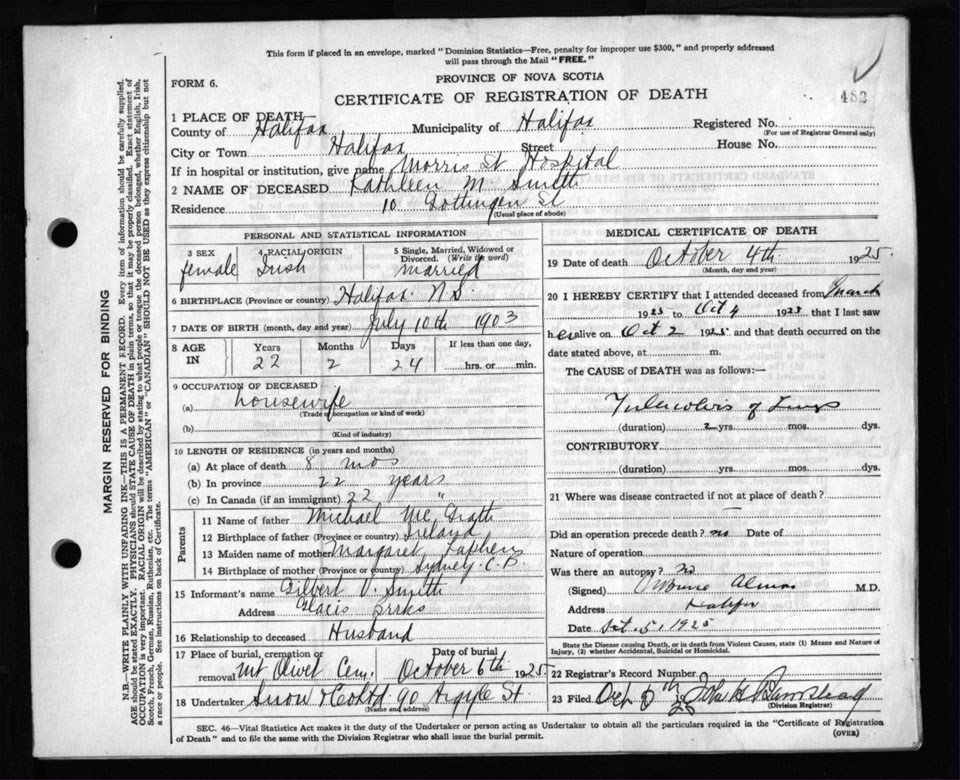 This form if placed in an envelope, marked "Dominion Statistics—Free, penalty for improper use $300," and properly addressed
will pass through the Mail "FREE."
FORM 6.
PROVINCE OF NOVA SCOTIA
CERTIFICATE OF REGISTRATION OF DEATH
483
1 PLACE OF DEATH—
County of Halifax Municipality of Halifax Registered No.
(For use of Registrar General only)
City or Town Halifax Street House No.
If in hospital or institution, give name Morris St Hospital
2 NAME OF DECEASED Kathleen M. Smith
Residence 10 Gottingen St
(Usual place of abode)
PERSONAL AND STATISTICAL INFORMATION
3 SEX 4 RACIAL ORIGIN 5 Single, Married, Widowed or Divorced. (Write the word)
female Irish married
6 BIRTHPLACE (Province or country) Halifax N.S.
7 DATE OF BIRTH (month, day and year) July 10th 1903
8 AGE IN Years Months Days If less than one day,
22 2 24 hrs. or min.
9 OCCUPATION OF DECEASED
(a) housewife
(Trade occupation or kind of work)
(b)
(Kind of industry)
10 LENGTH OF RESIDENCE (in years and months)
(a) At place of death 8 mos
(b) In province 22 years
(c) In Canada (if an immigrant) 22 "
Parents
11 Name of father Michael Mc Grath
12 Birthplace of father (Province or country) Ireland
13 Maiden name of mother Margaret
14 Birthplace of mother (Province or country) Sydney C.B.
15 Informant's name Gilbert V. Smith
Address Glacis Brrks
16 Relationship to deceased Husband
17 Place of burial, cremation or removal Mt Olivet Cem. Date of burial October 6th 1925
18 Undertaker Snow & Co Ltd 90 Argyle St.
(Name and address)
MEDICAL CERTIFICATE OF DEATH
19 Date of death October 4th 1925
(Month, day and year)
20 I HEREBY CERTIFY that I attended deceased from March
1925 to Oct 4 1925 that I last saw
her alive on Oct 2 1925 and that death occurred on the
date stated above, at m.
The CAUSE of DEATH was as follows:—
Tuberculosis of Lungs
(duration) 2 yrs. mos. dys.
CONTRIBUTORY.
(duration) yrs. mos. dys.
21 Where was disease contracted if not at place of death?
Did an operation precede death? no Date of
Nature of operation
Was there an autopsy? no
(Signed) Almon M.D.
Address Halifax
Date Oct. 5, 1925
State the Disease causing Death, or in death from Violent Causes, state (1) Means and Nature of
Injury, (2) whether Accidental, Suicidal or Homicidal.
22 Registrar's Record Number.
23 Filed Oct 5th 1925 John H.
(Division Registrar)
SEC. 46—Vital Statistics Act makes it the duty of the Undertaker or person acting as Undertaker to obtain all the particulars required in the "Certificate of Registration
of Death" and to file the same with the Division Registrar who shall issue the burial permit.
(OVER)
MARGIN RESERVED FOR BINDING
N.B.—WRITE PLAINLY WITH UNFADING INK—THIS IS A PERMANENT RECORD. Every item of information should be carefully supplied.
AGE should be stated EXACTLY. PHYSICIANS should STATE CAUSE OF DEATH in plain terms, so that it may be properly classified. Exact statement of
OCCUPATION is very important. RACIAL ORIGIN will be described by stating to what people or tongue the deceased person belonged, whether English, Irish,
Scotch, French, German, Russian, Ruthenian, etc. The terms "AMERICAN" or "CANADIAN" SHOULD NOT BE USED as they express citizenship but not
a race or people. See instructions on back of Certificate.